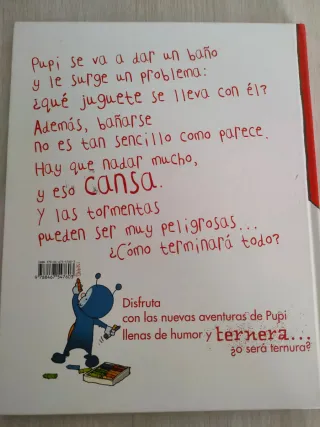 Pupi se va a dar un baño
y le surge un problema:
¿qué juguete se lleva con él?
Además, bañarse
no es tan sencillo como parece.
Hay que nadar mucho,
y eso CANSA.
Y las tormentas
pueden ser muy peligrosas...
¿Cómo terminará todo?
Disfruta
con las nuevas aventuras de Pupi
llenas de humor y ternera...
¿o será ternura?